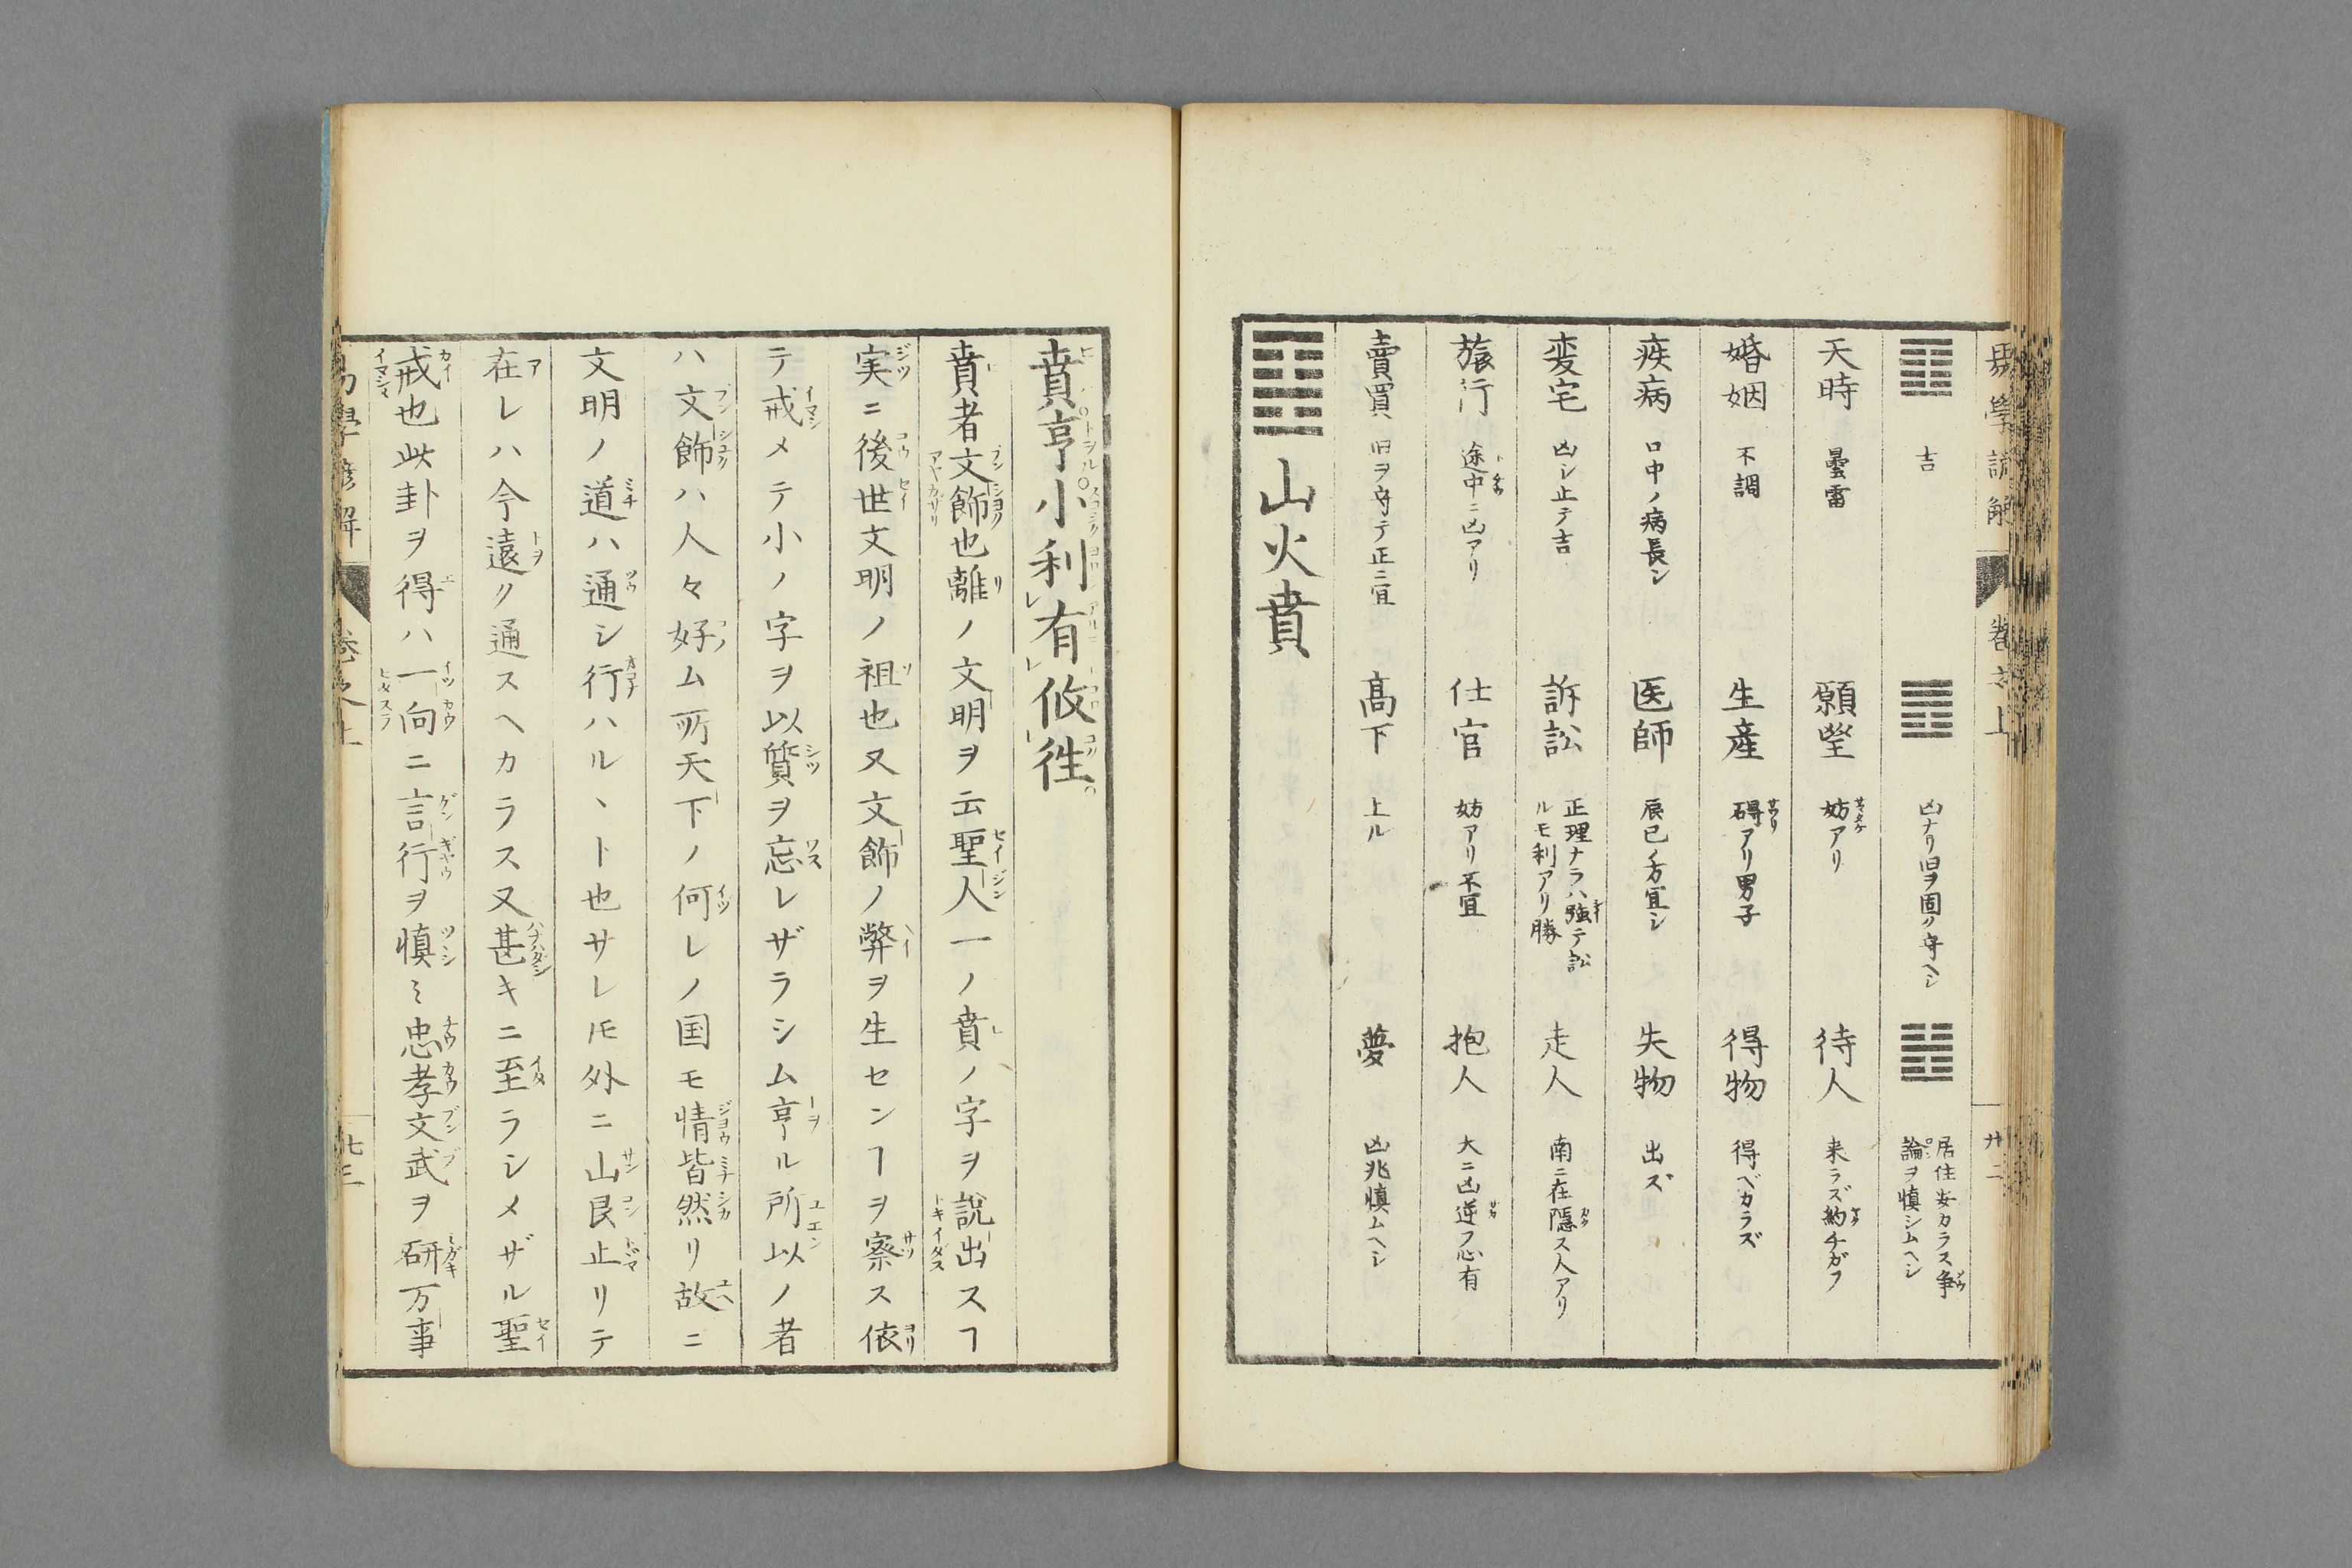 易學諺解 巻之上 廿二
吉 凶ナリ旧ヲ固ク守ヘシ 居住安カラス争論ヲ慎シムヘシ
天時 曇雷 願望 妨アリ 待人 来ラズ約チガフ
婚姻 不調 生産 碍アリ男子 得物 得ベカラズ
疾病 口中ノ病長シ 医師 辰巳ノ方宜シ 失物 出ズ
変宅 凶シ止テ吉 訴訟 正理ナラハ強テ訟ルモ利アリ勝 走人 南ニ在隠ス人アリ
旅行 途中ニ凶アリ 仕官 妨アリ不宜 抱人 大ニ凶逆フ心有
賣買 旧ヲ守テ正ニ宜 高下 上ル 夢 凶兆慎ムヘシ
山火賁
賁亨小利有攸徃
賁者文飾也離ノ文明ヲ云聖人一ノ賁ノ字ヲ説出スヿ
実ニ後世文明ノ祖也又文飾ノ弊ヲ生センヿヲ察ス依
テ戒メテ小ノ字ヲ以質ヲ忘レザラシム亨ル所以ノ者
ハ文飾ハ人々好ム所天下ノ何レノ国モ情皆然リ故ニ
文明ノ道ハ通シ行ハルヽト也サレ𪜈外ニ山艮止リテ
在レハ今遠ク通スヘカラス又甚キニ至ラシメザル聖
戒也此卦ヲ得ハ一向ニ言行ヲ慎ミ忠孝文武ヲ研万事
易學諺解 巻之上 廿三